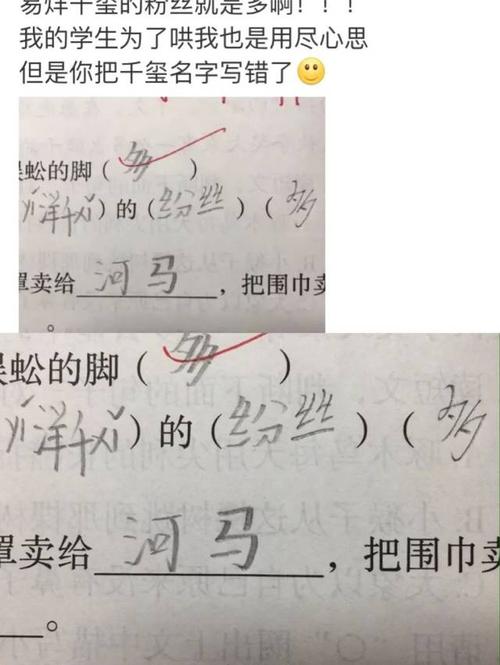 易烊千玺的粉丝就是多啊！！！
我的学生为了哄我也是用尽心思
但是你把千玺名字写错了
蚣的脚（多）
洋千xǐ）的（纷丝）（多
卖给河马，把围巾卖
。
蚣的脚（多）
洋千xǐ）的（纷丝）（多
卖给河马，把围巾卖
。